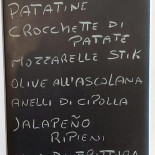 PATATINE
CROCCHETTE DI
PATATE
MOZZARELLE STIK
OLIVE ALL'ASCOLANA
ANELLI DI CIPOLLA
JALAPEÑO
RIPIENI